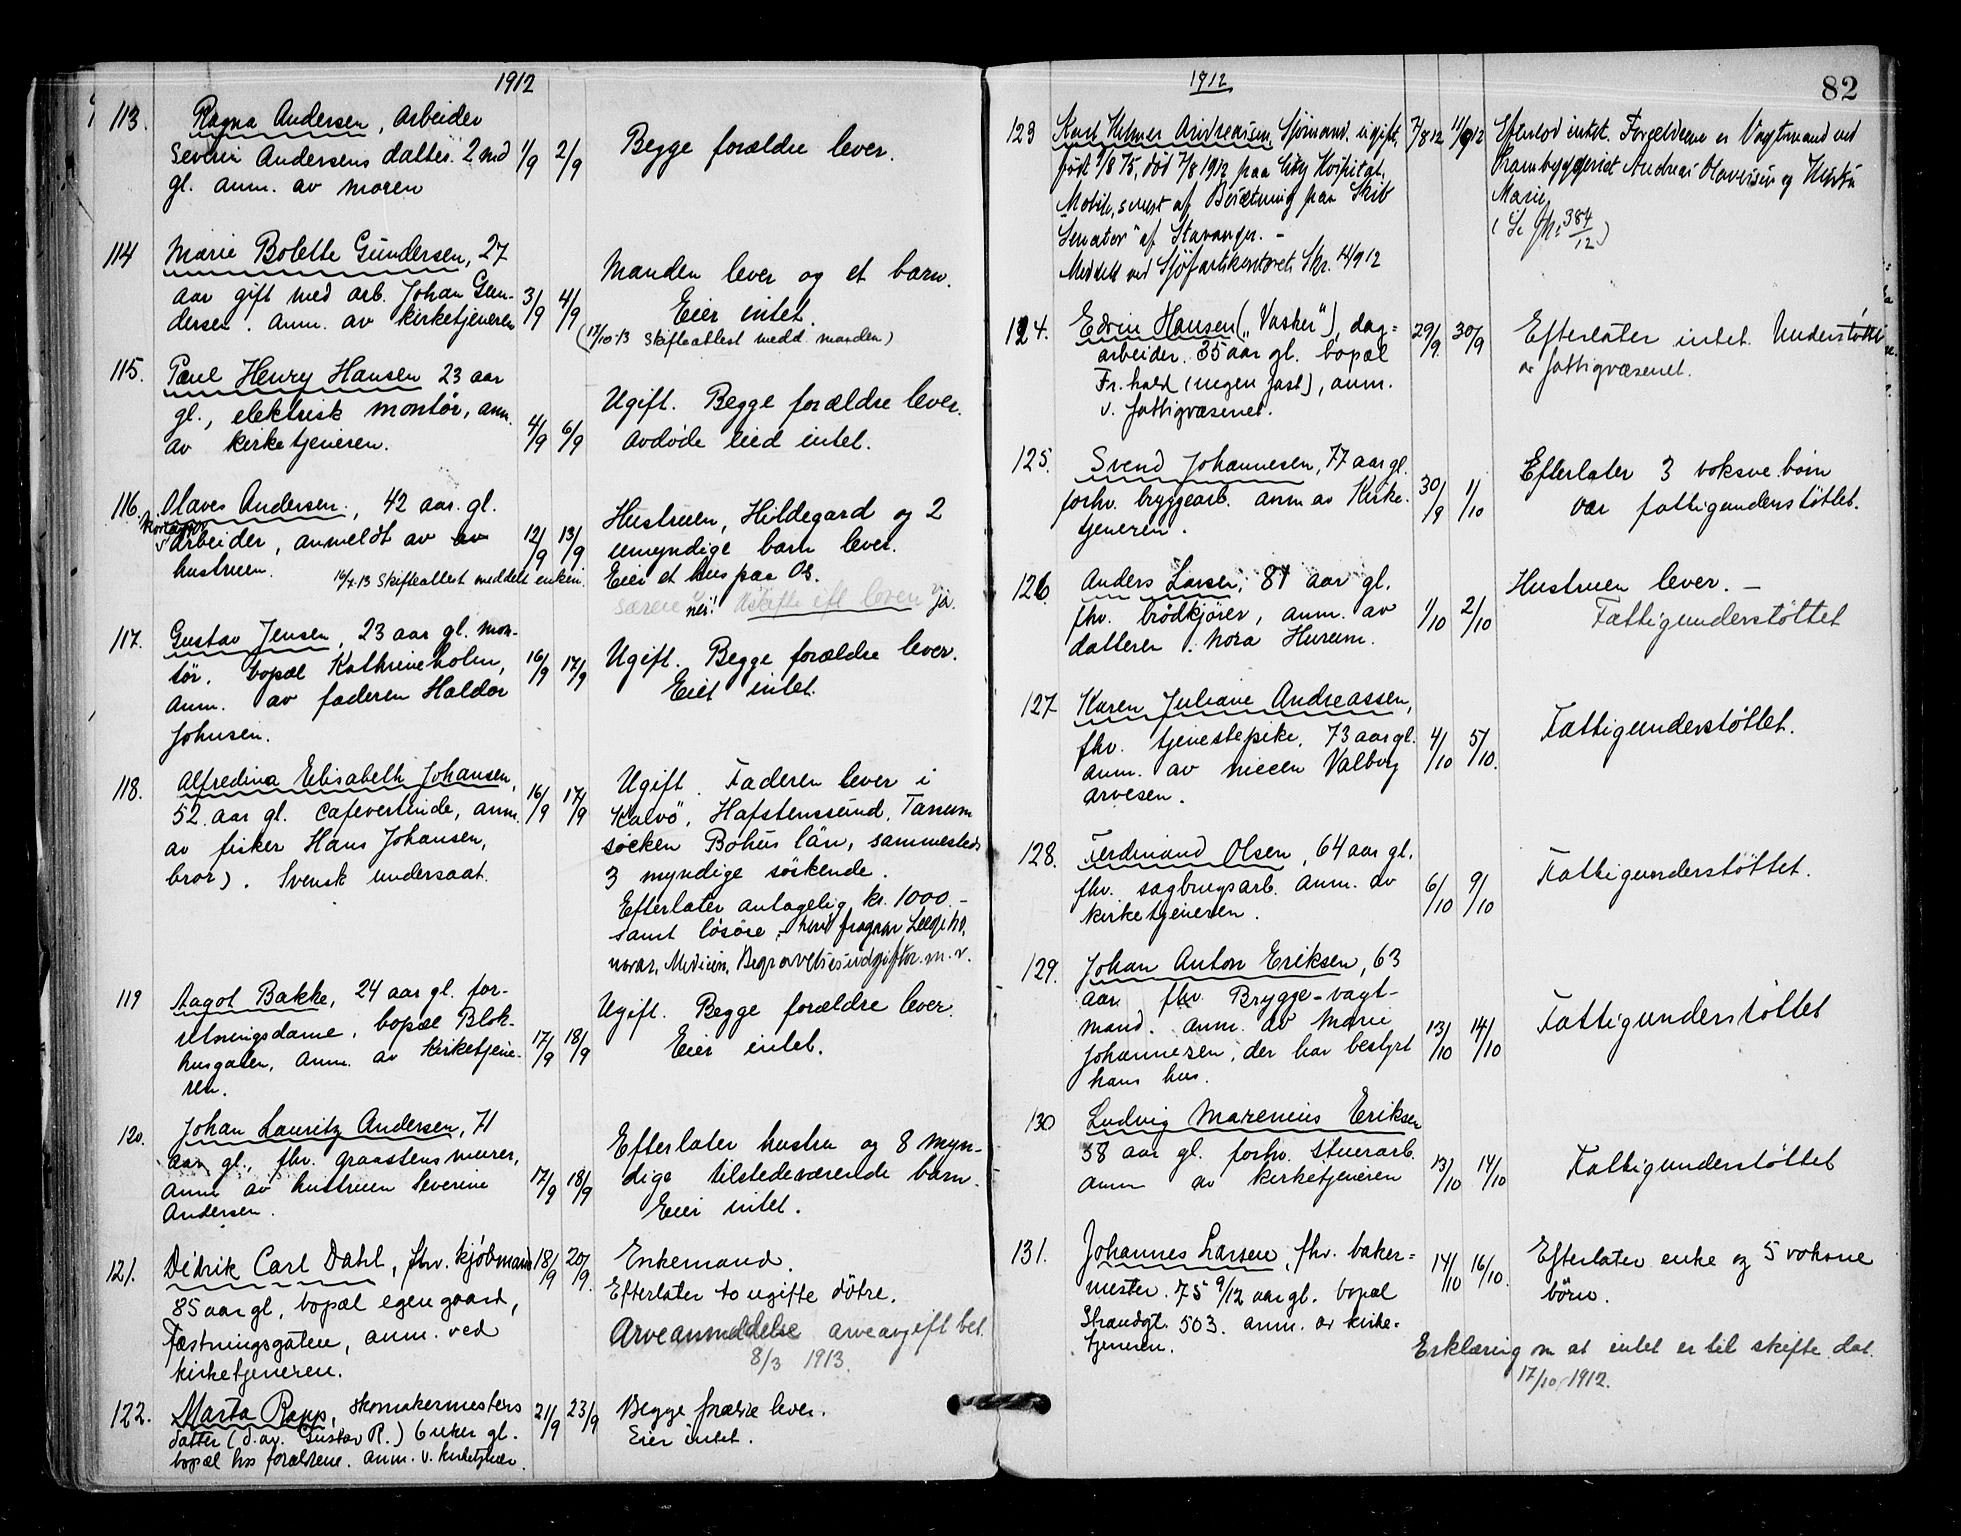 1912
113. Ragna Andersen, Arbeider
Severin Andersens datter. 2 md 1/9 2/9 Begge forældre lever.
gl. anm. av moren
114 Marie Bolette Gundersen, 27
aar gift med arb. Johan Gun- 3/9 4/9 Manden lever og et barn.
dersen. anm. av kirketjeneren Eier intet.
(17/10-13 Skifteattest medd. manden)
115. Paul Henry Hansen 23 aar
gl., elektrisk montör, anm. 4/9 6/9 Ugift. Begge forældre lever.
av kirketjeneren. Avdöde eied intet.
116. Olaves Andersen, 42 aar gl.
arbeider, anmeldt av 12/9 13/9 Hustruen, Hildegard og 2
hustruen. umyndige barn lever.
14/4-13 Skifteattest meddelt enken. Eier et hus paa Os.
nei! Uskifte eft loven ja.
117. Gustav Jensen, 23 aar gl. mon-
tör. bopæl Kathrineholm, 16/9 17/9 Ugift. Begge forældre lever.
anm. av faderen Haldor Eiet intet.
Johnsen.
118. Alfredina Elisabeth Johansen,
52 aar gl. Cafevertinde, anm. 16/9 17/9 Ugift. Faderen lever i
av fisker Hans Johansen, Kalvö, Hafstenssund, Tanum
bror). Svensk undersaat. söcken Bohus län, sammesteds
3 myndige söskende.
Efterlater antagelig kr. 1000.-
samt lösöre, hvorfra gaar Lægeho-
norar, Medicin, Begravelsesudgifter m. v.
119 Aagot Bakke, 24 aar gl. for-
retningsdame, bopæl Blok- 17/9 18/9 Ugift. Begge forældre lever.
husgaten, Anm. av Kirketjene- Eier intet.
ren.
120. Johan Lauritz Andersen, 71
aar gl., fhv. graastensmurer, Efterlater hustru og 8 myn-
anm av hustruen Severine 17/9 18/9 dige tilstedeværende barn.
Andersen. Eier intet.
121. Didrik Carl Dahl, fhv. kjöbmand 18/9 20/9. Enkemand.
85 aar gl, bopæl egen gaard, Efterlater to ugifte dötre.
Fæstningsgaten, anm. ved Arveanmeldelse arveavgift bet.
kirketjeneren. 8/3 1913.
122. Marta Rapp, skomakermesters 21/9 23/9 Begge forældre lever.
datter (d. av. Gustav R.) 6 uker gl. Eier intet.
bopæl hos forældrene. anm. v. kirketjener.
1912
82
123 Karl Hilmer Andreasen, Sjömand, ugift, 7/8 12 11/9 12 Efterlod intet. Forældrene er Vagtmand ved
født 9/8 75, död 7/8 1912 paa City Hospital, Andreas Olavesen og Hustru
Mobile, senest af Besætning paa Skib Marie
"Senator" af Stavanger. - 384/12)
Meddelt ved Sjöfartskontorets Skr. 14/9 12
124. Edvin Hansen ("Vasker"), dag= 29/9. 30/9 Efterlater intet. Understöttet
arbeider. 35 aar gl. bopæl av fattigvæsenet.
Fr.hald (ingen fast), anm.
v. fattigvæsenet.
125. Svend Johannesen, 77 aar gl. Efterlater 3 voksne börn
forhv. bryggearb. anm av Kirke- 30/9 1/10 var fattigunderstöttet.
tjeneren.
126 Anders Larsen, 81 aar gl. Hustruen lever. -
fhv. brödkjörer, anm. av 1/10 2/10 Fattigunderstöttet
datteren Nora Hurum.
127 Karen Juliane Andreassen,
fhv. tjenestepike, 73 aar gl. 4/10 5/10. Fattigunderstöttet.
anm. av niecen Valborg
Arvesen.
128. Ferdinand Olsen, 64 aar gl.
fhv. sagbrugsarb. Anm. av 6/10 9/10 Fattigunderstöttet.
kirketjeneren.
129. Johan Anton Eriksen, 63
aar fhv. Brygge-vagt-
mand. anm. av Marie 13/10 14/10 Fattigunderstöttet
Johannesen, der har bestyrt
hans hus.
130 Ludvig Marenius Eriksen
38 aar gl. forhv. stuerarb. 13/10 14/10 Fattigunderstöttet
anm av kirketjeneren
131. Johannes Larsen, fhv. baker= 14/10 16/10. Efterlater enke og 5 voksne
mester. 75 9/12 aar gl. bopæl börn.
Strandgt. 503. anm. av kirke=
tjeneren. Erklæring om at intet er til skifte dat.
17/10 1912.